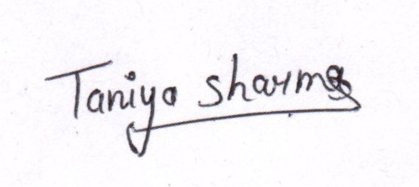 Taniya Sharma